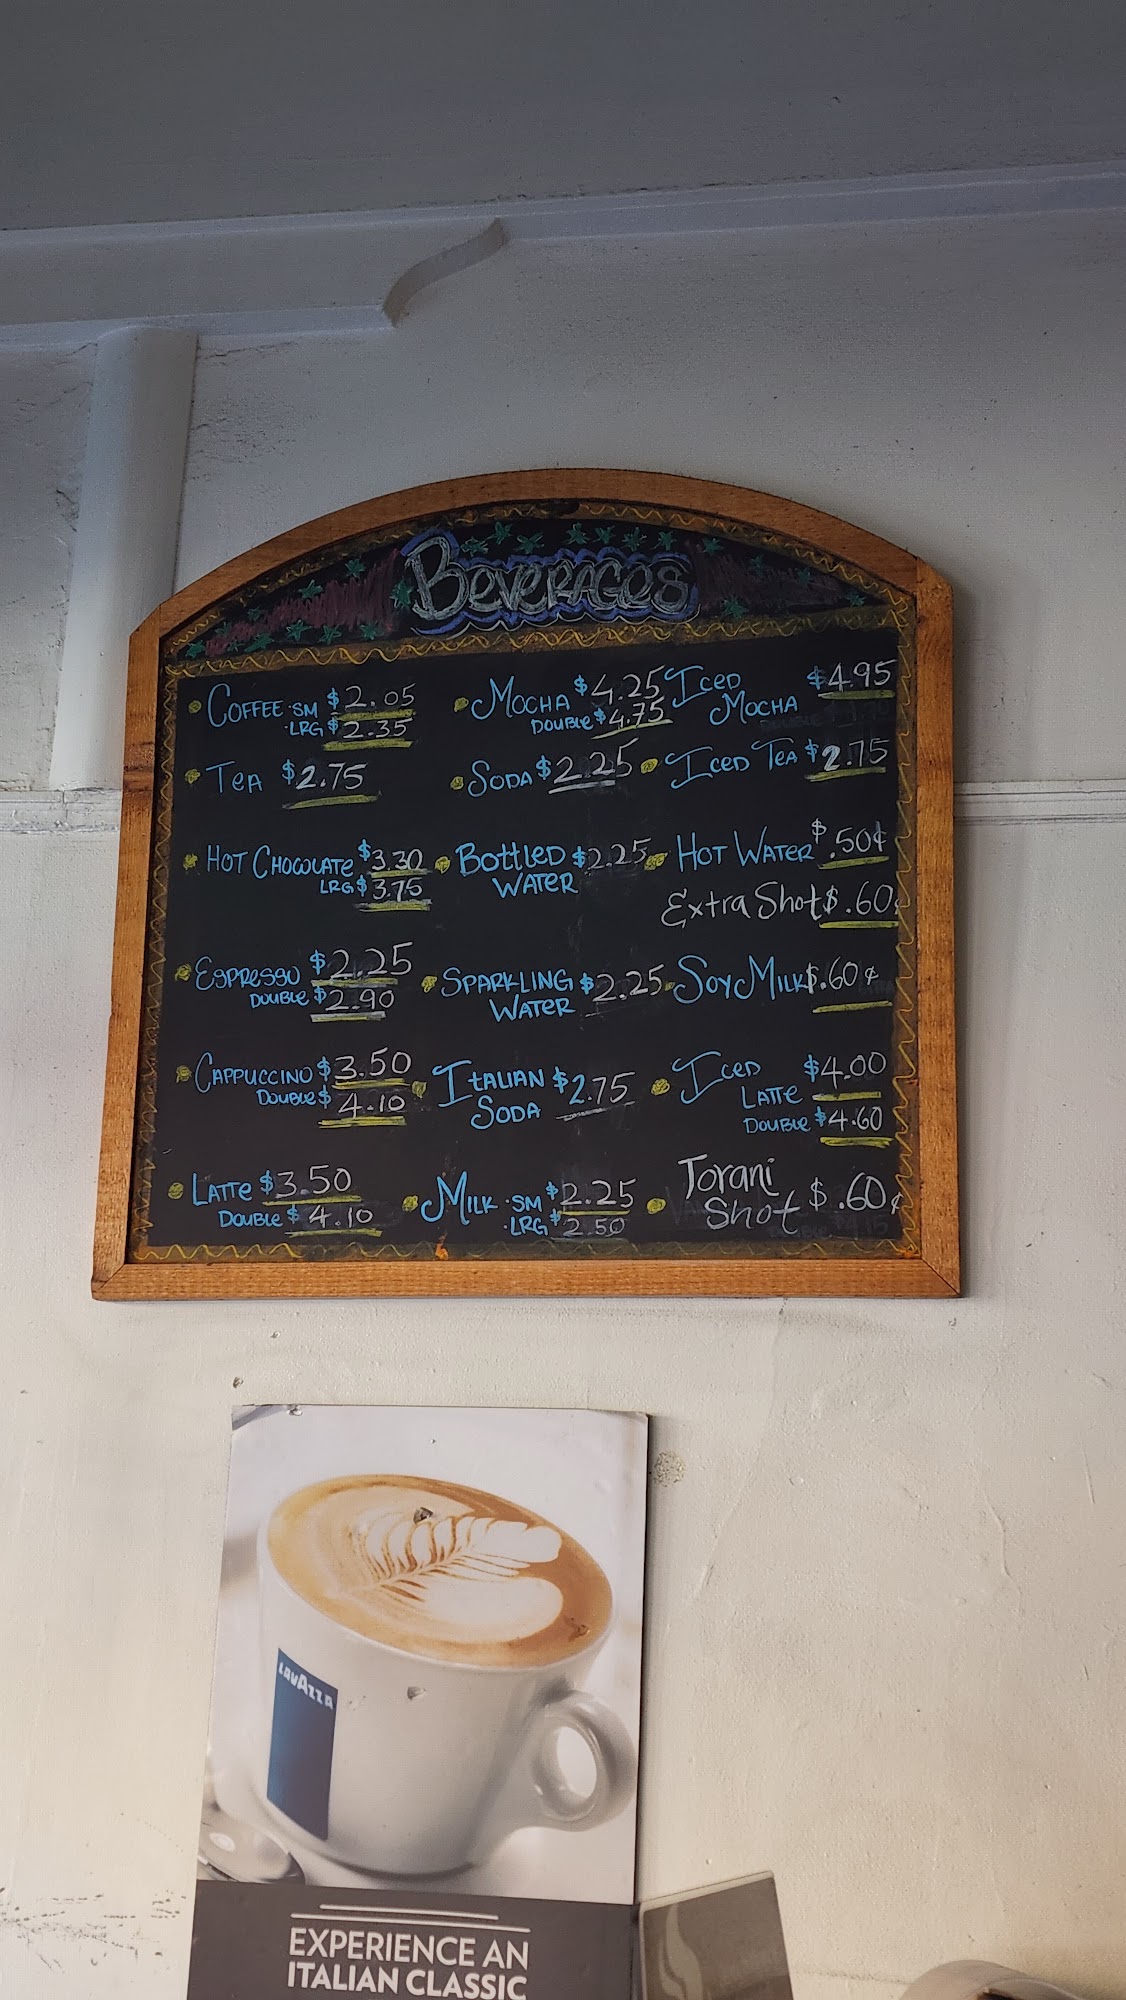 Beverages
Coffee ·SM $2.05
·LRG $2.35
Tea $2.75
Hot Chocolate $3.30
LRG $3.75
Espresso $2.25
Double $2.90
Cappuccino $3.50
Double $4.10
Latte $3.50
Double $4.10
Mocha $4.25
Double $4.75
Soda $2.25
Bottled $2.25
Water
Sparkling $2.25
Water
Italian $2.75
Soda
Milk ·SM $2.25
·LRG $2.50
Iced $4.95
Mocha
Iced Tea $2.75
Hot Water $.50¢
Extra Shot $.60¢
Soy Milk $.60¢
Iced $4.00
Latte
Double $4.60
Torani
Shot $.60¢
LAVAZZA
EXPERIENCE AN
ITALIAN CLASSIC